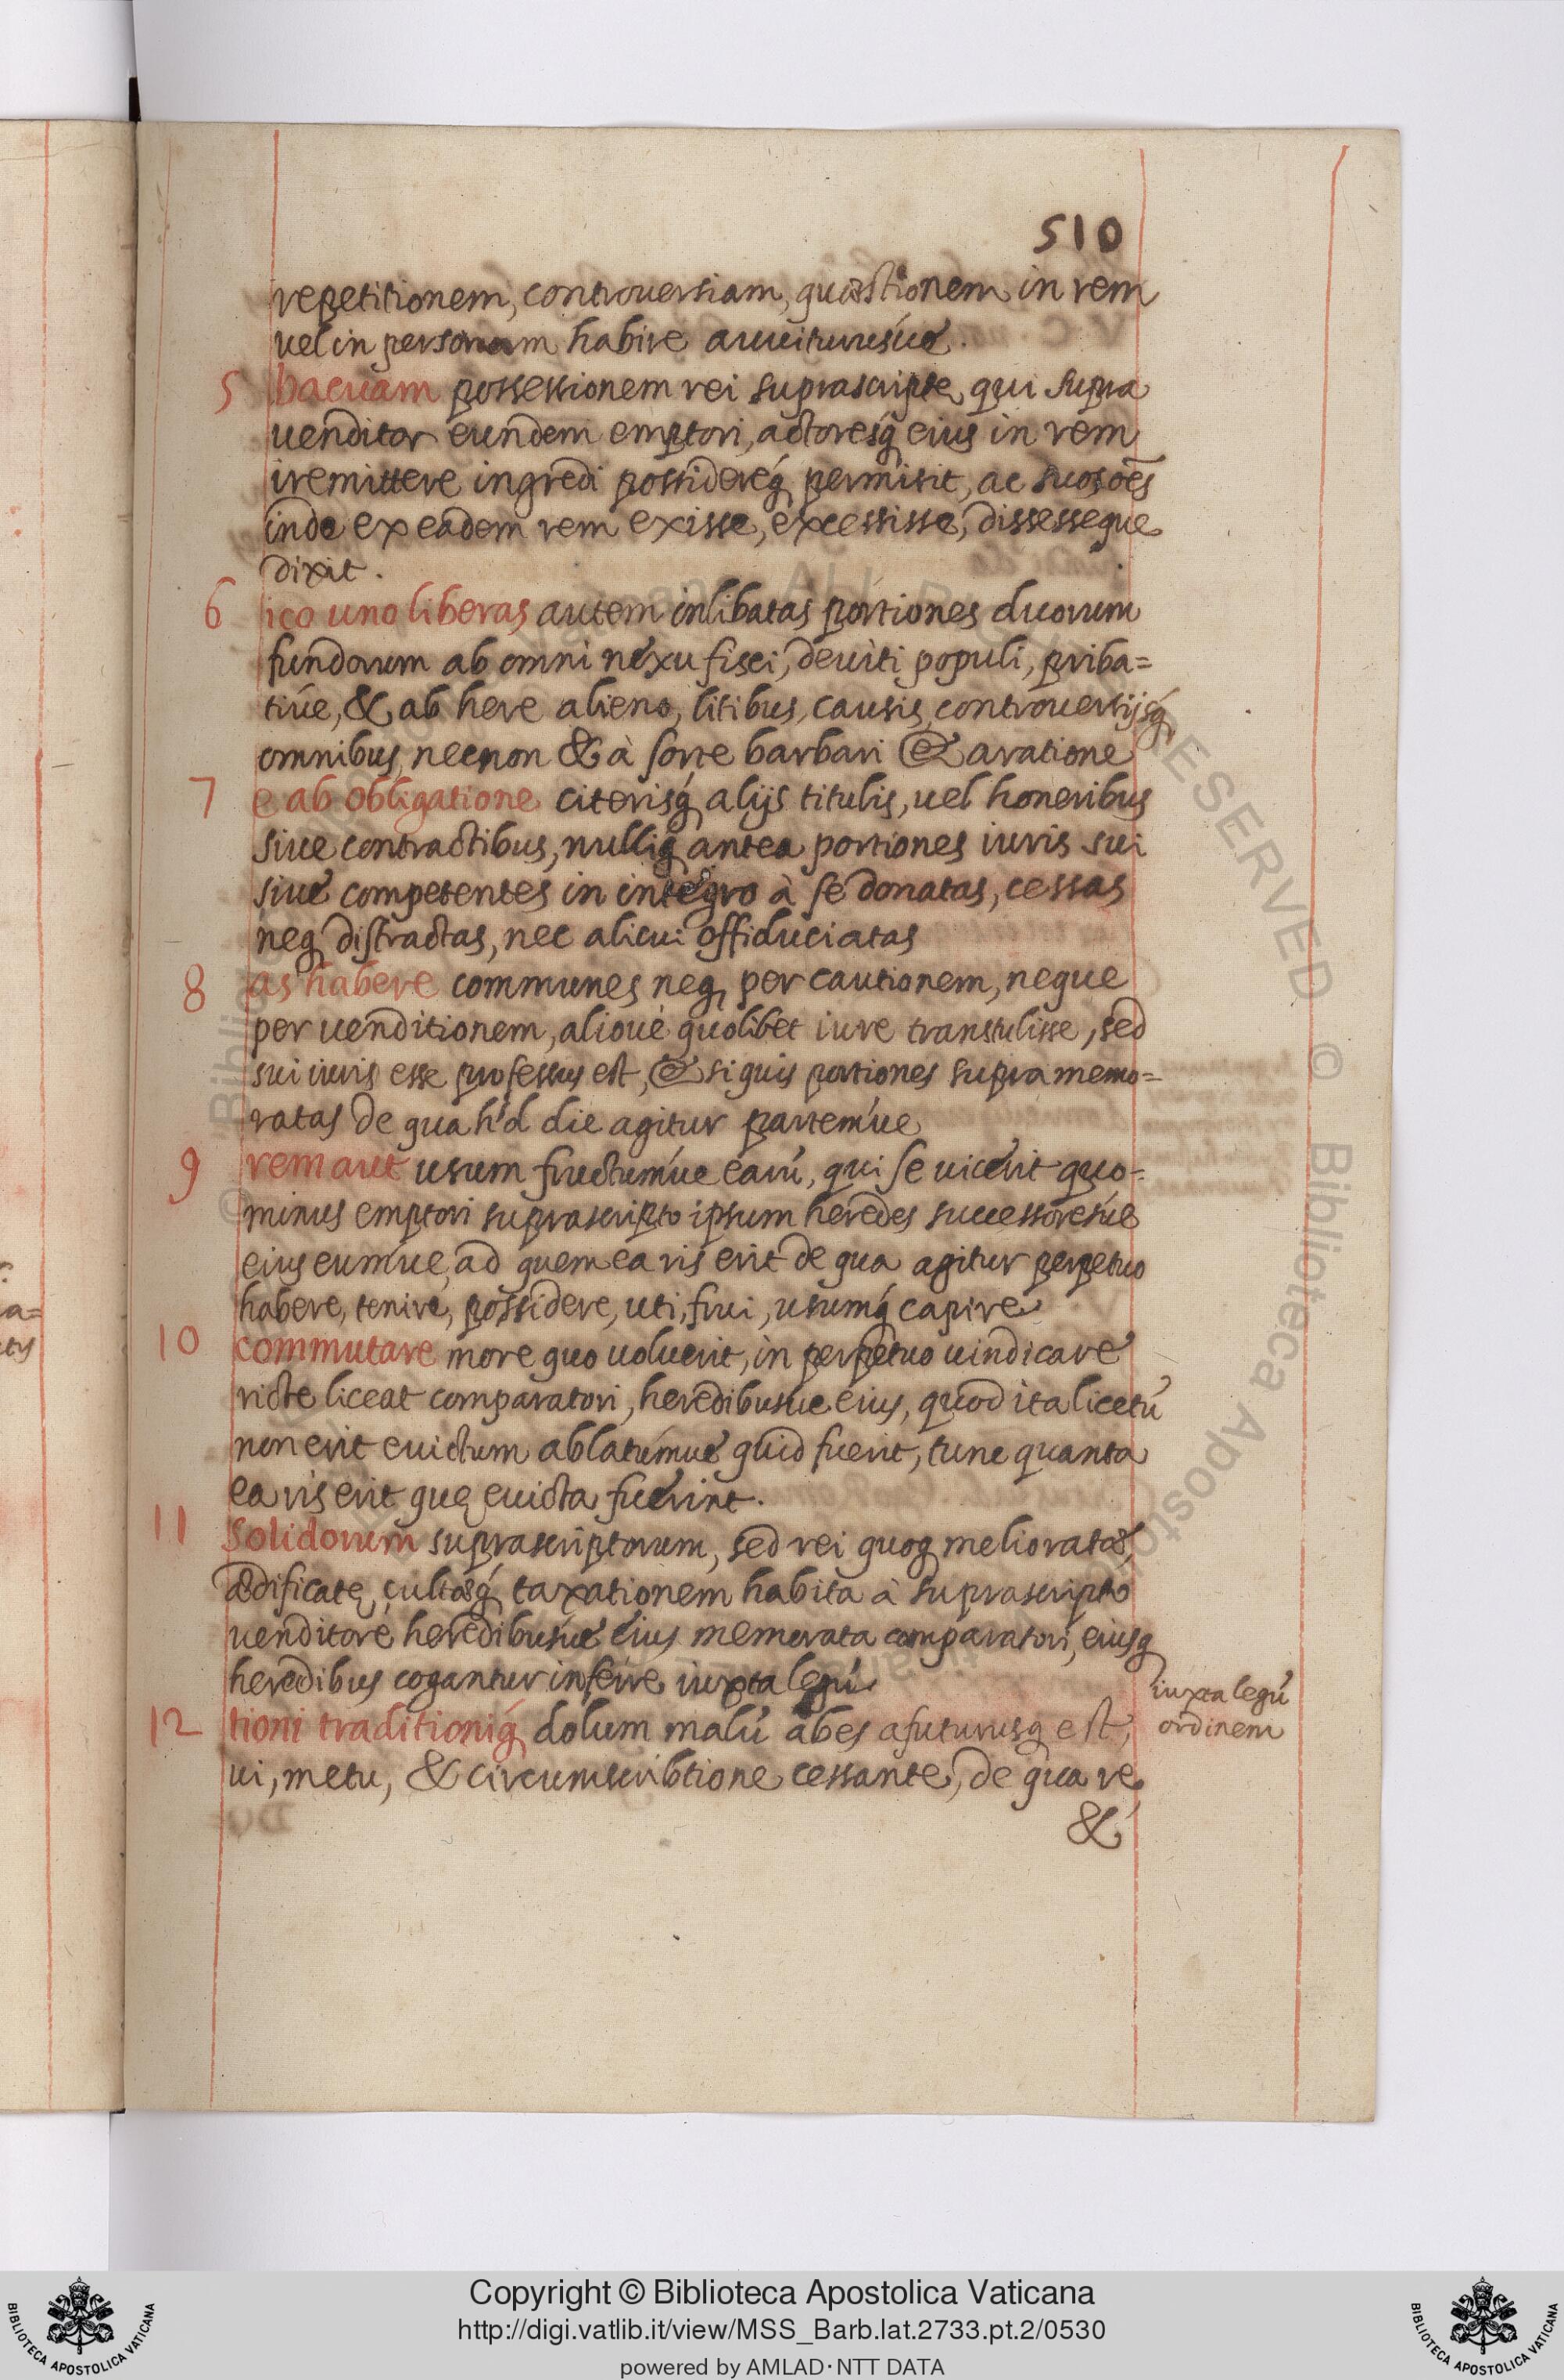 510
repetitionem, controuersiam, quæstionem in rem
uel in personam habire auuiturusúe.
5 bacuam possessionem rei suprascripte, qui supra
uenditor eundem emptori, actoresq́ eius in rem
iremittere ingredi possidereq́ permisit, ac suos oẽs
inde ex eadem rem exisse, excessisse, dissesseque
dixit.
6 ico uno liberas autem inlibatas portiones duorum
fundorum ab omni nexu fisci, deuiti populi, priba=
tiúe, & ab here alieno, litibus, causis, controuersijsq́
omnibus, necnon & à sorte barbari & aratione
7 e ab obligatione citerisq́ alijs titulis, uel honeribus
siue contractibus, nulliq́ antea portiones iuris sui
siue competentes in integro à se donatas, cessas
neq, distractas, nec alicui offiduciatas
8 as habere communes neq, per cautionem, neque
per uenditionem, alioué quolibet iure transtulisse, sed
sui iuris esse professus est, & siquis portiones supra memo=
ratas de qua h'd die agitur partem'ue
9 rem aut usum fructum'ue earũ, qui se uicerit quo-
minus emptori suprascripto ipsum heredes successoresúe
eius eum'ue, ad quem ea ris erit de qua agitur perpetuo
habere, tenire, possidere, uti, frui, usumq́ capire
10 commutare more quo uoluerit, in perpetuo uindicare
ricte liceat comparatori, heredibusue eius, quod ita licetũ
non erit euictum ablatum'ue quid fuerit, tunc quanta
ea ris erit quę euicta fuerint.
11 Solidorum suprascriptorum, sed rei quoq, melioratæ,
ædificatę, cultæq́ taxationem habita à suprascripto
uenditore heredibusúe eius memorata comparatori, eiusq
heredibus cogantur inferre iuxta legũ
iuxta legũ
ordinem
12 tioni traditioniq́ dolum malũ abes afuturusq est,
ui, metu, & circumscribtione cessante, de qua re
&
Copyright © Biblioteca Apostolica Vaticana
http://digi.vatlib.it/view/MSS_Barb.lat.2733.pt.2/0530
powered by AMLAD·NTT DATA
BIBLIOTECA APOSTOLICA VATICANA
BIBLIOTECA APOSTOLICA VATICANA